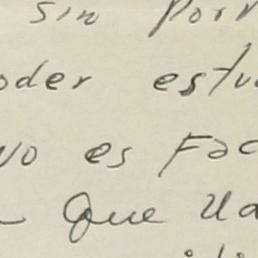 sin por
oder estu
no es Fac
Que Ua